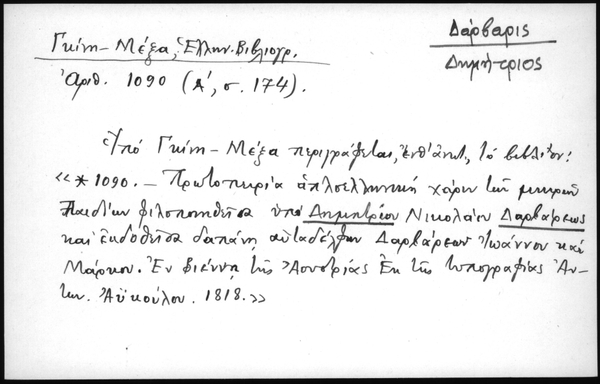 Δάρβαρις
Δημήτριος
Γκίνη - Μέξα, Ἑλλην. Βιβλιογρ.
Ἀριθ. 1090 (Α΄, σ. 174).
Ὑπό Γκίνη - Μέξα περιγράφεται, ἐνθ' ἀνωτ., τό βιβλίον:
«* 1090. — Πρωτοπειρία ἁπλοελληνική χάριν τῶν μικρῶν
Παιδίων φιλοπονηθεῖσα ὑπό Δημητρίου Νικολάου Δαρβάρεως
καί ἐκδοθεῖσα δαπάνῃ αὐταδέλφων Δαρβάρεων Ἰωάννου καί
Μάρκου. Ἐν Βιέννῃ τῆς Ἀουστρίας Ἐκ τῆς τυπογραφίας Ἀν-
των. Ἁϋκούλου. 1818.»